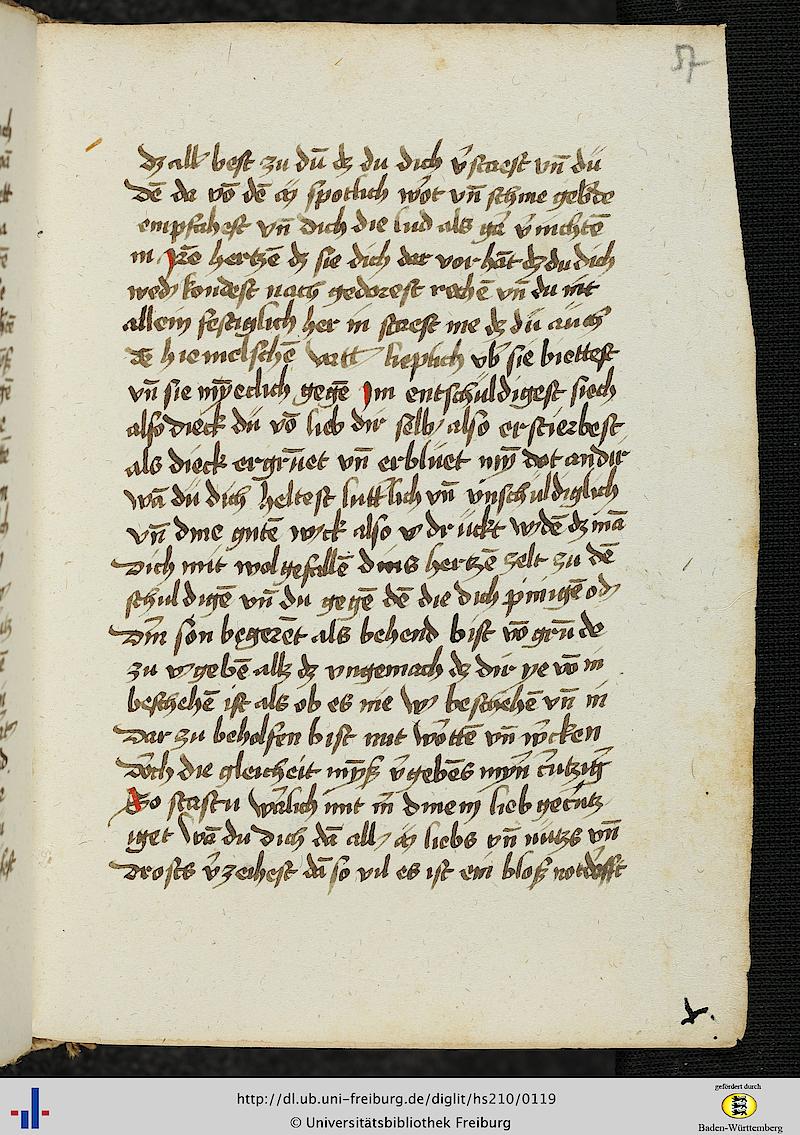 57
dz all best zu dū dz du dich v̄staest vn̄ dü
dē da vō dē ay spotlich wōt vn̄ schme gebde
empfahest vn̄ dich die lud als gā v̄nichtē
in jrē hertzē dz sie dich dar vor hāt dz du dich
wed kondest nach gedorest rechē vn̄ du nit
allein festiglich her in staest me dz dü auch
dē hiemelschē vatt lieplich vb̄ sie biettest
vn̄ sie myeclich gegē Im entschuldigest siech
also dieck dü vō lieb dir selb also erstierbest
als dieck ergrūet vn̄ erblüet myn dot an dir
wā dü dich heltest lutt lich vn̄ vnschuldiglich
vn̄ dine gutē wck also v drückt wdē dz mā
Dich mit wolgefallē dins hertzē zelt zu dē
schuldigē vn̄ du gegē dē die dich pinigē od
Din son begerēt als behend bist vō grūde
zu v gebē allz dz vngemach dz dir ye vō in
beschehē ist als ob es nie w beschehē vn̄ in
Dar zu beholfen bist mit wōttē vn̄ wcken
Doch die gleicheit myß v̄gebēs myn̄ crutzig
So stastu wālich mit m̄ dinem lieb gecrutz
iget wā du dich dā all ay liebs vn̄ nutzs vn̄
Drosts v̄zeihest dā so vil es ist ein bloß notdofft
http://dl.ub.uni-freiburg.de/diglit/hs210/0119
© Universitätsbibliothek Freiburg
gefördert durch
Baden-Württemberg